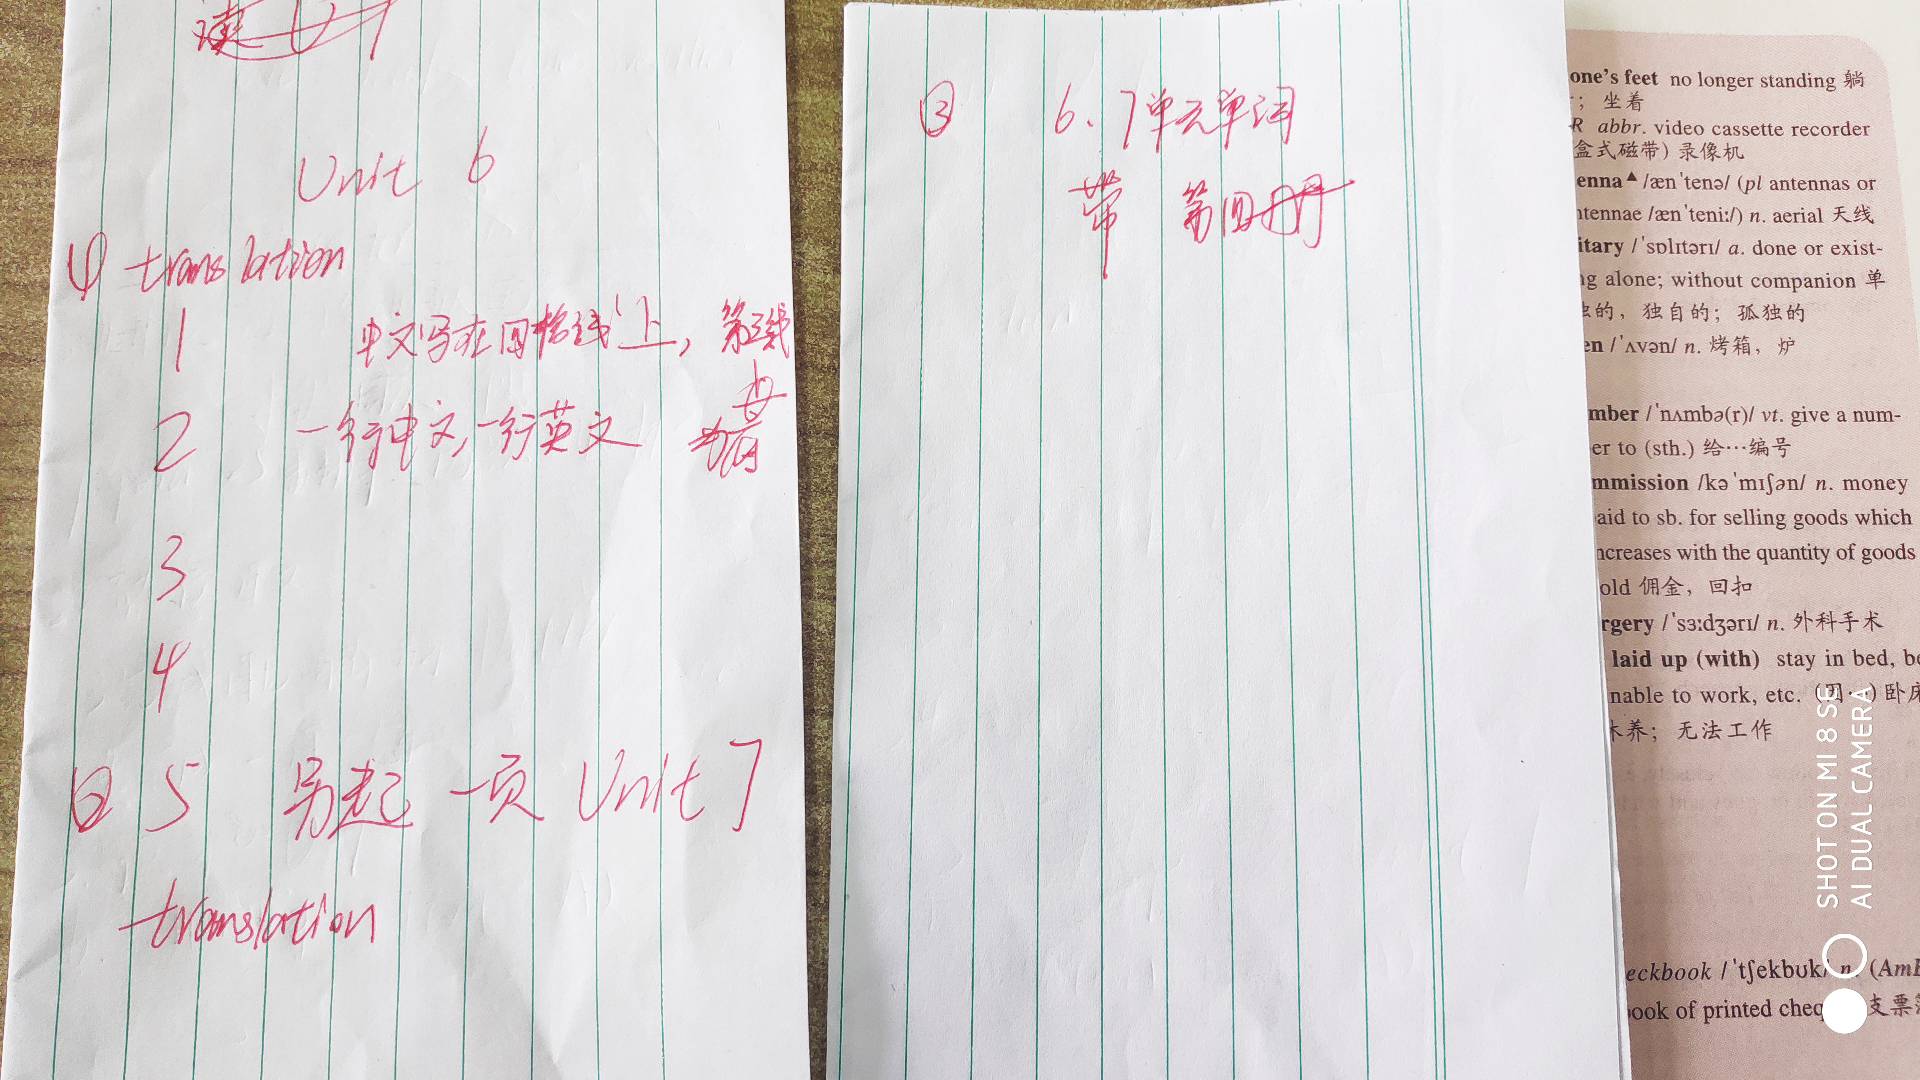 Unit 6
① translation
1 中文写在回格线上,
2 一行中文,一行英文
3
4
5
② 另起一页 Unit 7
translation
③ 6、7单元单词
带
one's feet no longer standing 躺
; 坐着
R abbr. video cassette recorder
盒式磁带) 录像机
enna▲ /æn'tenə/ (pl antennas or
ntennae /æn'teni:/) n. aerial 天线
itary /'sɒlɪtərɪ/ a. done or exist-
ng alone; without companion 单
独的, 独自的; 孤独的
en /'ʌvən/ n. 烤箱, 炉
mber /'nʌmbə(r)/ vt. give a num-
er to (sth.) 给…编号
mmission /kə'mɪʃən/ n. money
aid to sb. for selling goods which
ncreases with the quantity of goods
old 佣金, 回扣
rgery /'sɜːdʒərɪ/ n. 外科手术
laid up (with) stay in bed, be
nable to work, etc. (因…) 卧床
休养; 无法工作
eckbook /'tʃekbʊk/ n. (AmE
ook of printed cheq 支票
SHOT ON MI 8 SE
AI DUAL CAMERA